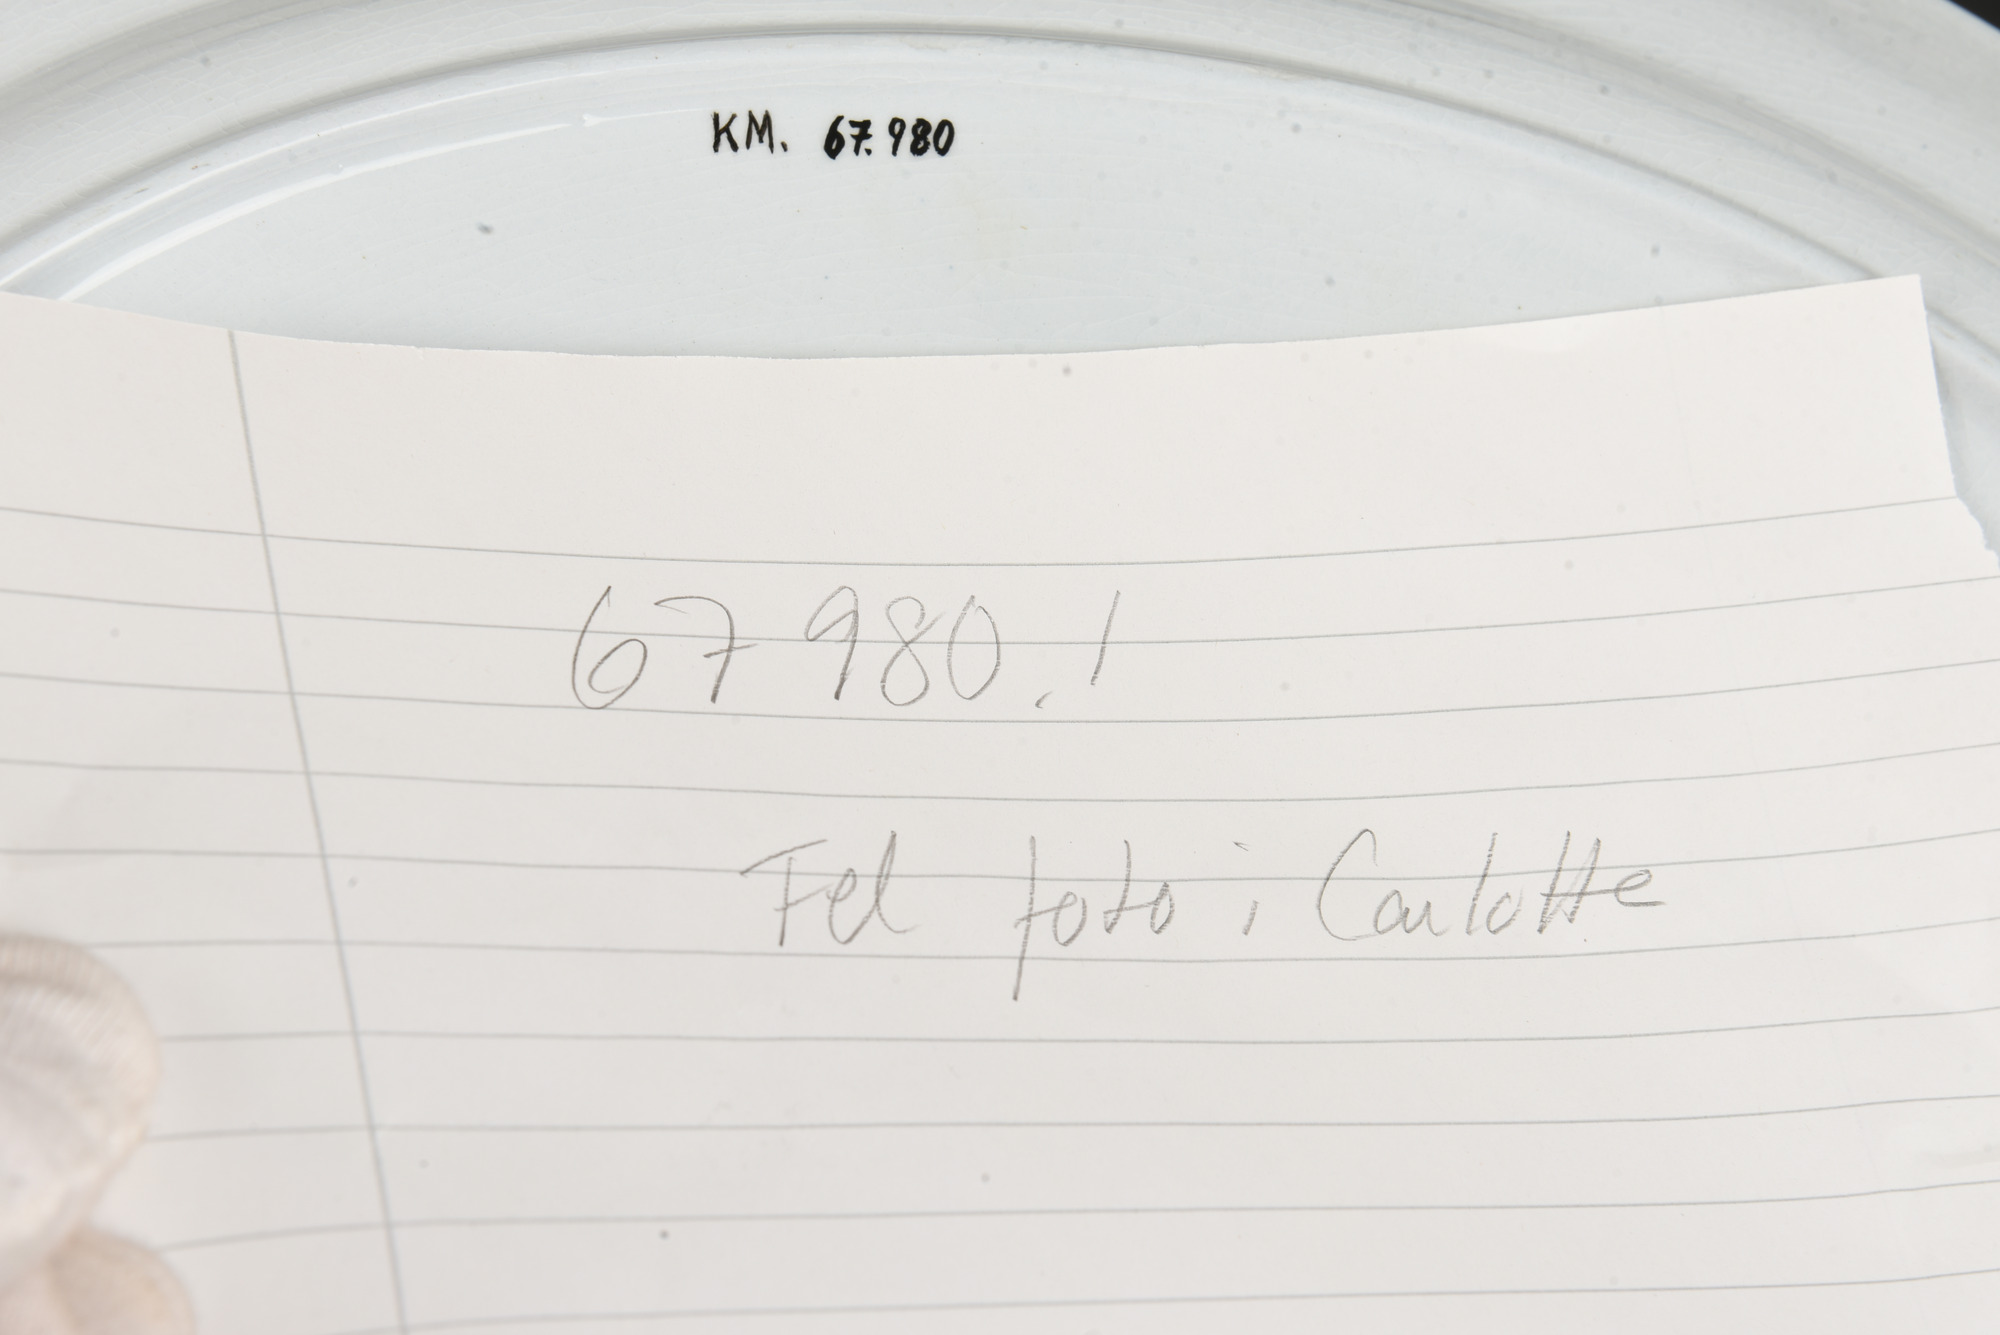 KM. 67.980
67 980.1
Fel foto i Carlotta